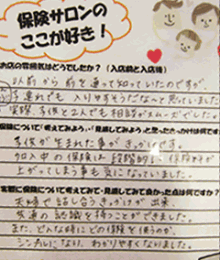 保険サロンの
ここが好き!
お店の雰囲気はどうでしたか?(入店前と入店後)
以前から前を通って知っていたのですが、
子連れでも入りやすそうだなって思っていました
実際、子供と2人でも相談がスムーズでした。
保険について「考えてみよう。・「見直してみよう」と思ったきっかけは何です
子供が生まれた事がきっかけです。
今加入中の保険は段階的に保険料が
上がってしまう事も気になっていました。
実際に保険について考えてみて・見直してみて良かった点は何ですか?
夫婦で話し合うきっかけが出来、
共通の認識を持つことができました。
また、どんな時にどの保険を使うのか、
シンプルになり、わかりやすくなりました。